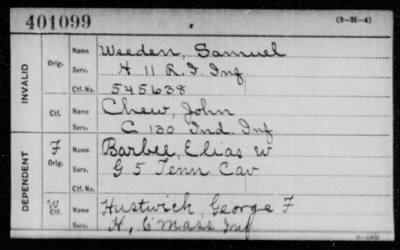 401099 (3-H-4)
INVALID
Orig. Name Weeden, Samuel
Serv. H 11 R. I. Inf
Ctf. No. 545638
Ctf. Name Chew, John
Serv. C 130 Ind. Inf
DEPENDENT
F Orig. Name Barbee, Elias W
Serv. G 5 Tenn Cav
Ctf. No.
W Ctf. Name Hustwich, George F
Serv. H, 6 Mass Inf